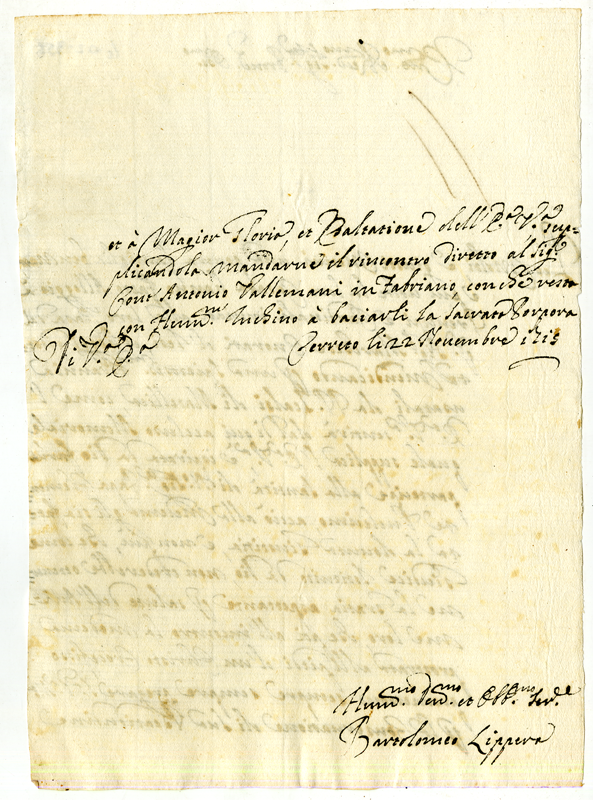 et à Magior Gloria, et Esaltatione dell' E.a V.a sup-
plicandola mandarne il rincontro diretto al Sig.r
Cont' Antonio Vallemani in Fabriano, con che resto
con Humil.mo Inchino à baciarli la Sacrata Porpora
Di V.a E.a
Cerreto li 22 Novembre 1715
Humil.mo Dev.mo et Obb.mo Ser.e
Bartolomeo Lippera